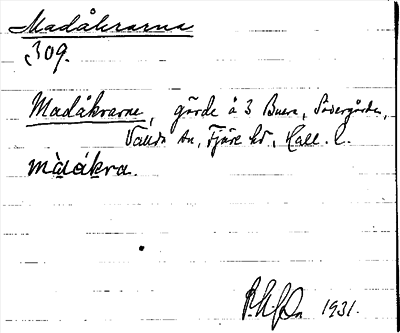 Madåkrarna
309.
Madåkrarne, gärde å 3 Buera, Södergården,
Valda sn, Fjäre hd, Hall. l.
màdákra.
1931.